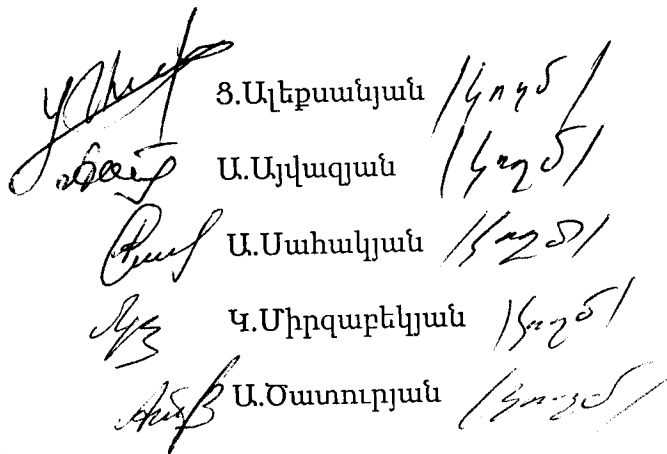 Յ.Ալեքսանյան /կողմ/
Ա.Այվազյան /կողմ/
Ա.Սահակյան /կողմ/
Կ.Միրզաբեկյան /կողմ/
Ա.Ծատուրյան /կողմ/